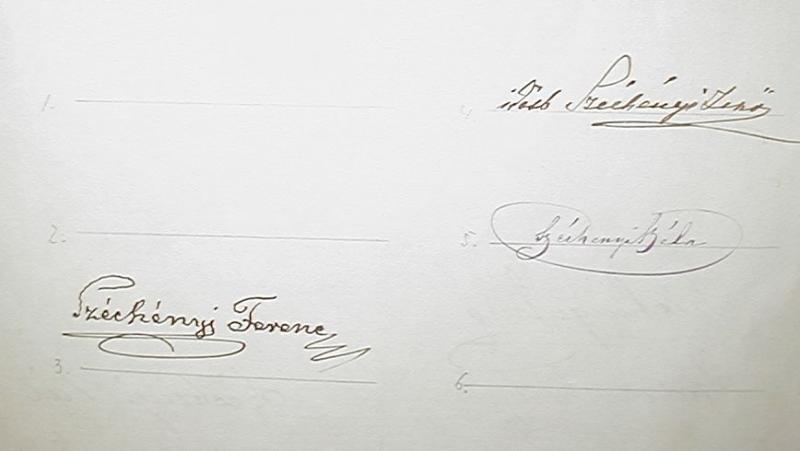 1.
2.
Széchényi Ferenc
3.
4. idősb Széchényi Jenő
5. Széchenyi Béla
6.